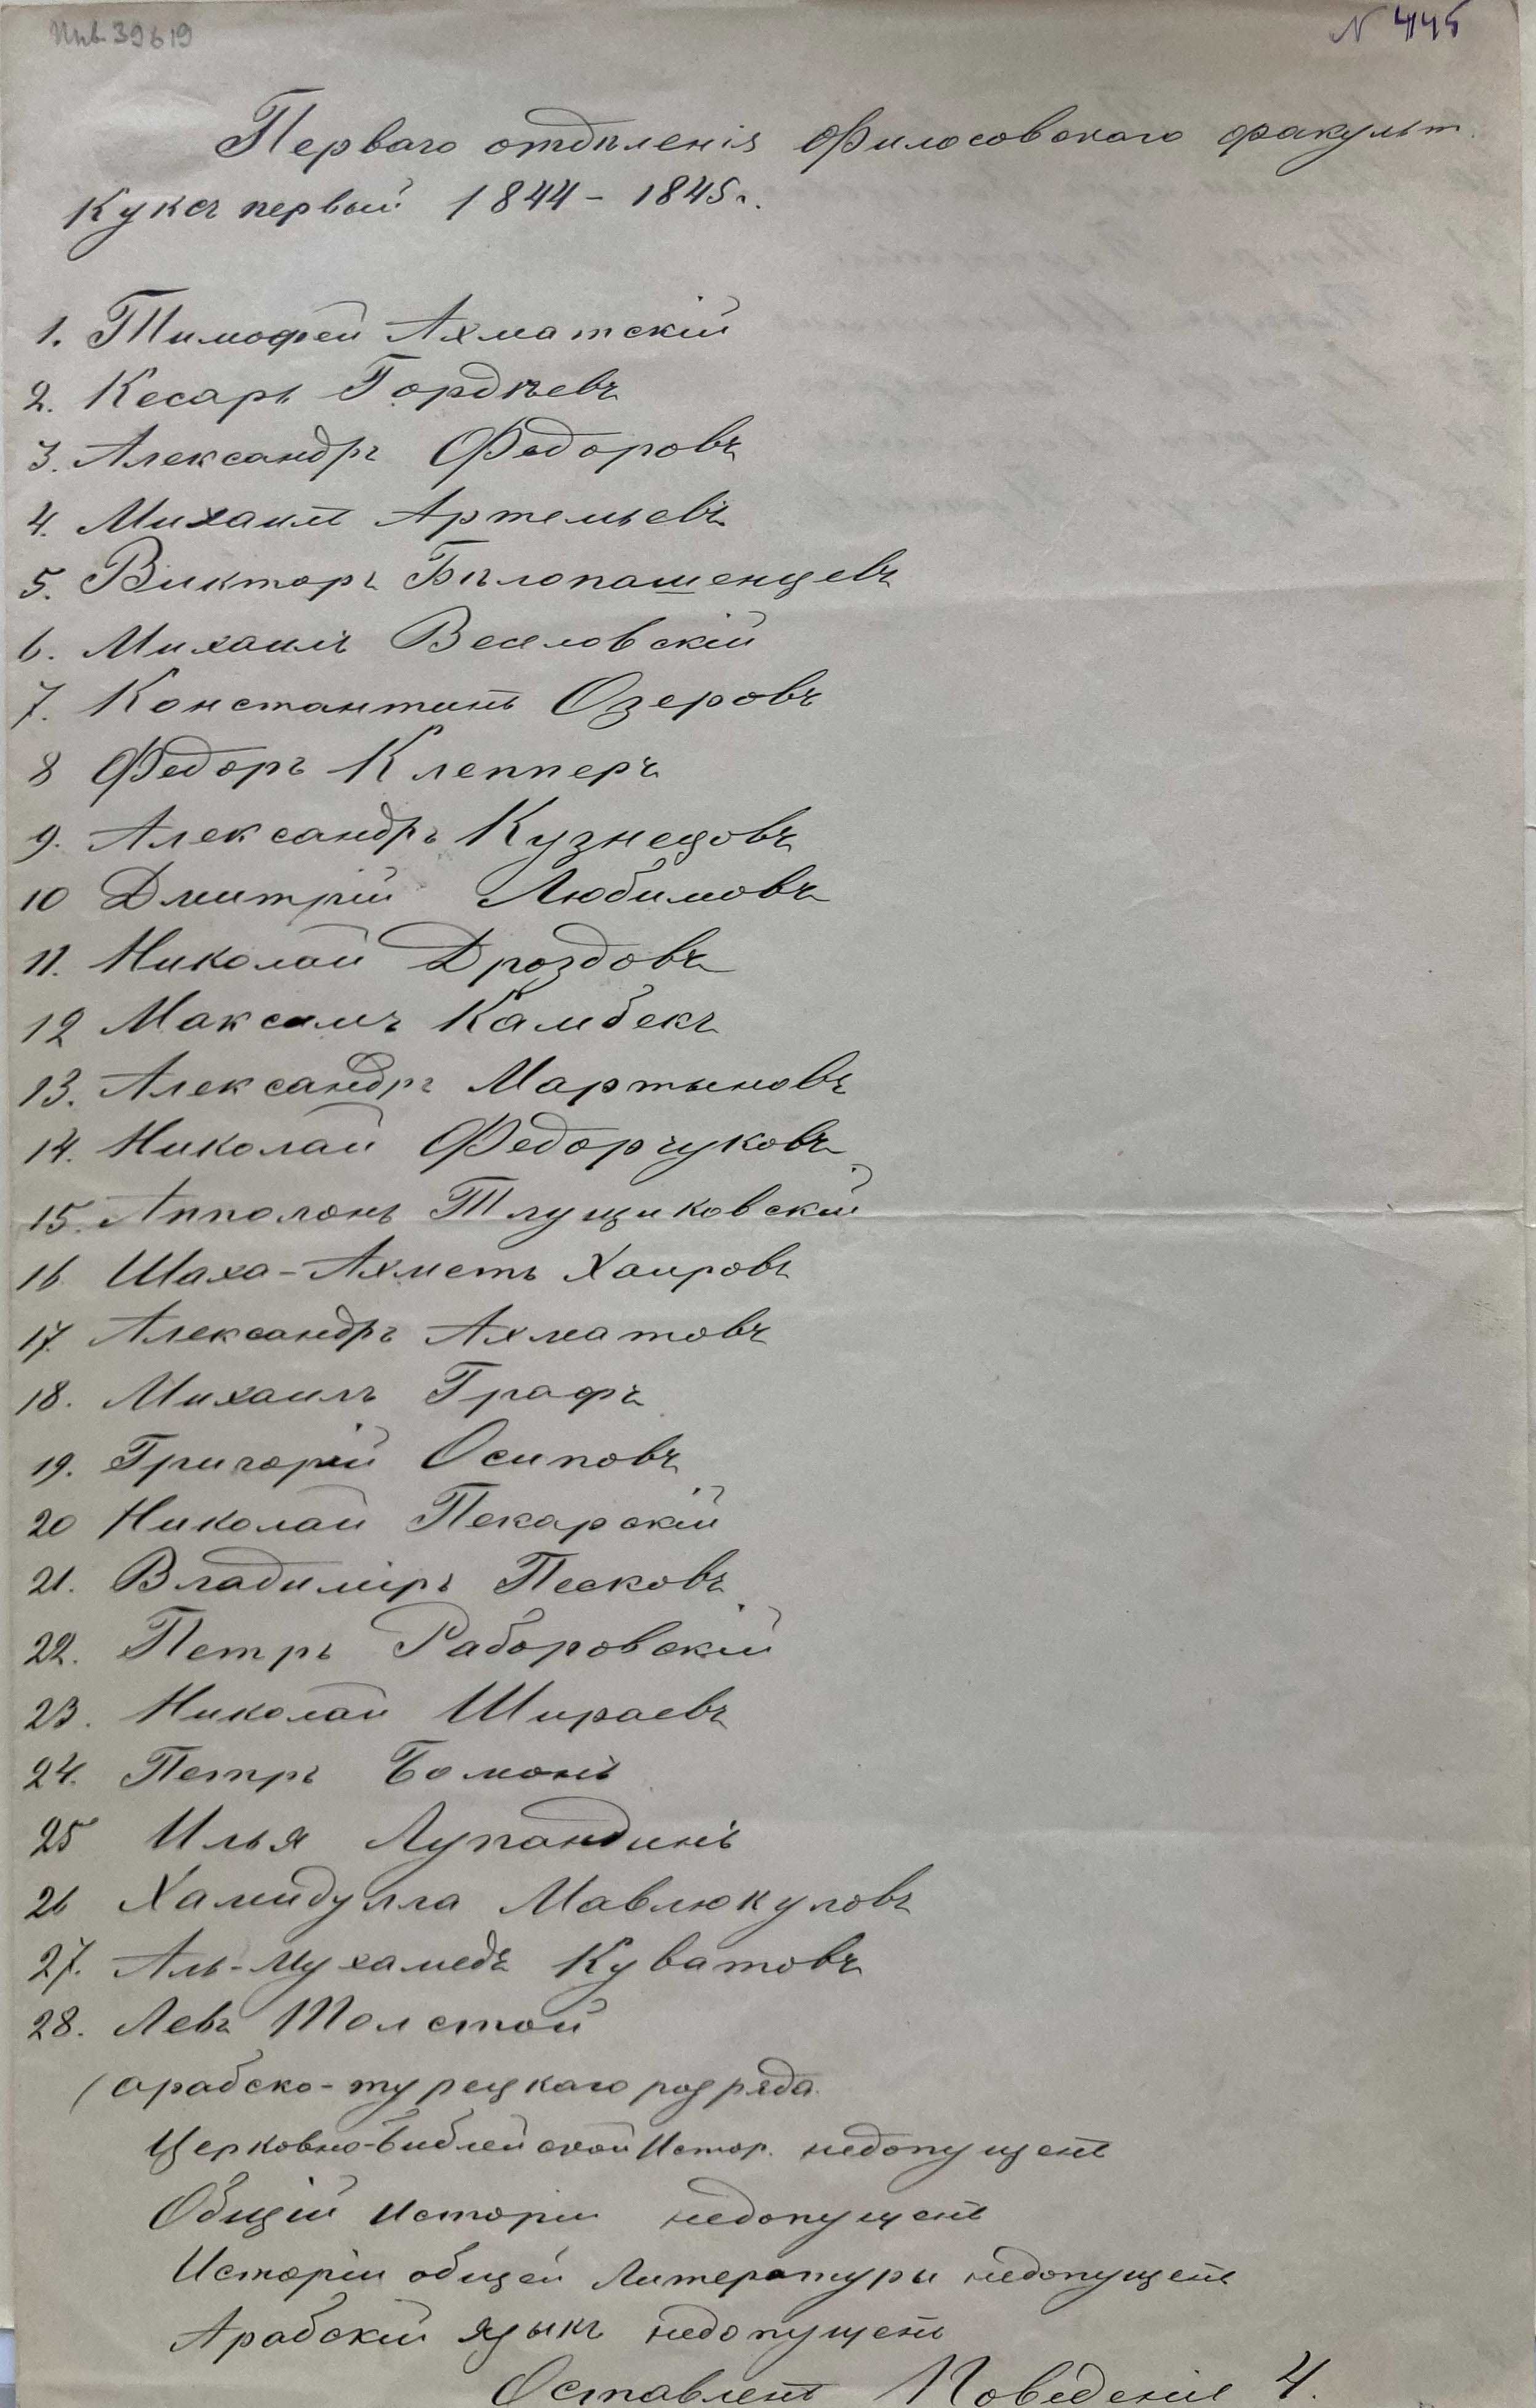 Инв. 39619
N 445
Перваго отдѣленія Филосовскаго факульт.
Куксъ первый 1844 - 1845 г.
1. Тимофей Ахматскій
2. Кесарь Гордѣевъ
3. Александръ Федоровъ
4. Михаилъ Артемьевъ
5. Викторъ Бѣлопашенцевъ
6. Михаилъ Веселовскій
7. Константинъ Озеровъ
8 Федоръ Клепперъ
9. Александръ Кузнецовъ
10 Дмитрій Любимовъ
11. Николай Дроздовъ
12 Максимъ Камбекъ
13. Александръ Мартыновъ
14. Николай Федорчуковъ
15. Апполонъ Тлущиковскій
16 Шаха-Ахметъ Хаировъ
17. Александръ Ахматовъ
18. Михаилъ Графъ
19. Григорій Осиповъ
20 Николай Пекарскій
21. Владиміръ Песковъ
22. Петръ Работовскій
23. Николай Шираевъ
24. Петръ Бомонъ
25 Илья Лупандинъ
26 Хамидулла Мавлюкуловъ
27. Аль-Мухамедъ Куватовъ
28. Левъ Толстой
(арабско-турецкаго разряда.
Церковно-библейской Истор. недопущенъ
Общій Исторіи недопущенъ
Исторіи общей Литературы недопущенъ
Арабскій языкъ недопущенъ
Оставленъ Поведеніе 4.